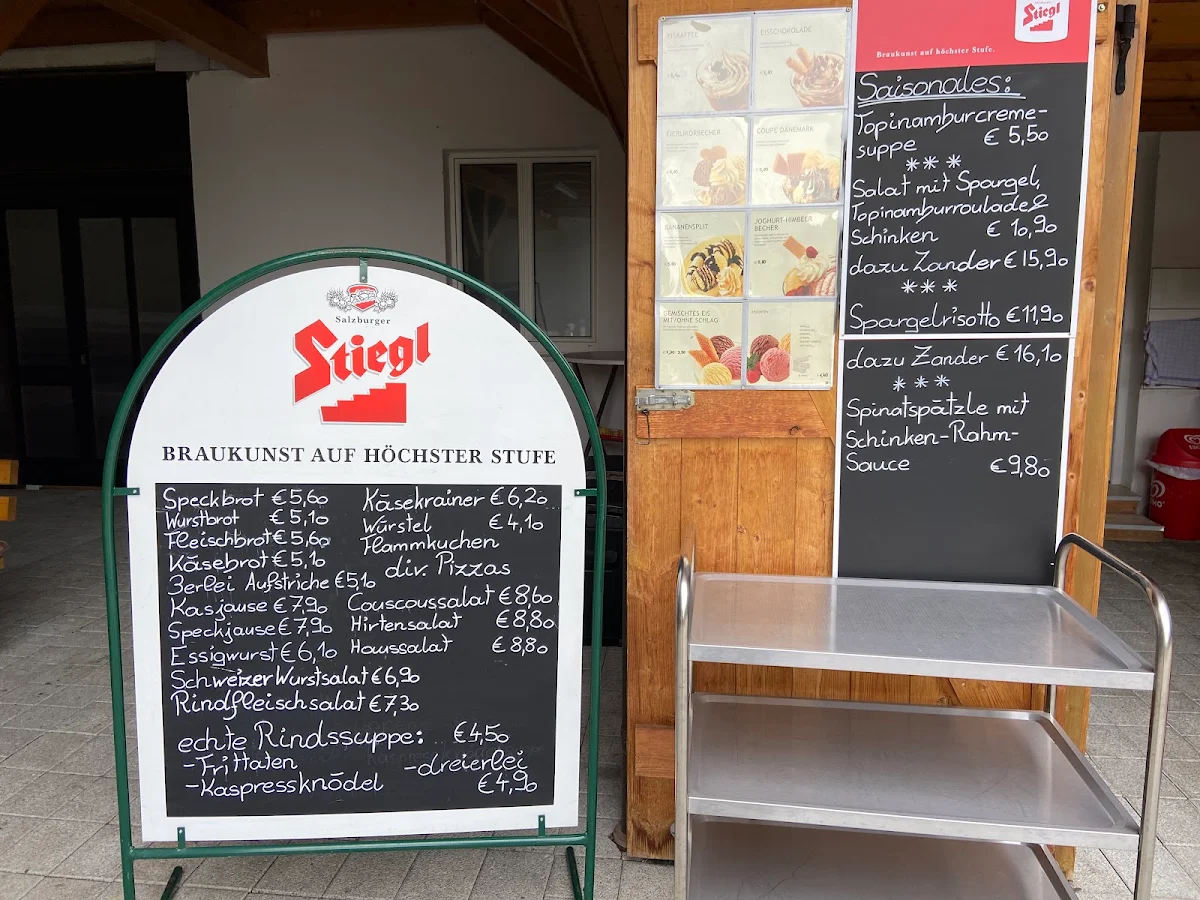 Salzburger
Stiegl
BRAUKUNST AUF HÖCHSTER STUFE
Speckbrot € 5,60
Wurstbrot € 5,10
Fleischbrot € 5,60
Käsebrot € 5,10
3erlei Aufstriche € 5,10
Kasjause € 7,90
Speckjause € 7,90
Essigwurst € 6,10
Schweizer Wurstsalat € 6,90
Rindfleischsalat € 7,30
Käsekrainer € 6,20
Würstel € 4,10
Flammkuchen
div. Pizzas
Couscoussalat € 8,60
Hirtensalat € 8,80
Haussalat € 8,80
echte Rindssuppe: € 4,50
-Frittaten
-Kaspressknödel
-dreierlei
€ 4,90
EISKAFFEE
EISSCHOKOLADE
EIERLIKÖRBECHER
COUPE DÄNEMARK
BANANENSPLIT
JOGHURT-HIMBEER
BECHER
GEMISCHTES EIS
MIT/OHNE SCHLAG
Stiegl
Braukunst auf höchster Stufe.
Saisonales:
Topinamburcreme-
suppe € 5,50
***
Salat mit Spargel,
Topinamburroulade &
Schinken € 10,90
dazu Zander € 15,90
***
Spargelrisotto € 11,90
dazu Zander € 16,10
***
Spinatspätzle mit
Schinken-Rahm-
Sauce € 9,80